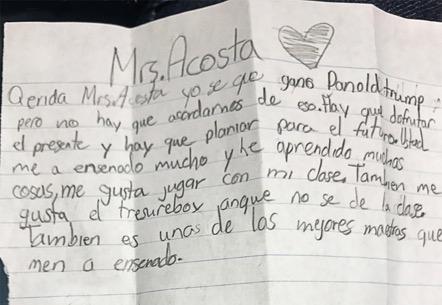 Mrs. Acosta
Qerida Mrs. Acosta yo se que gano Donold trump
pero no hay que acordarnos de eso. Hay que disfrutar
el presente y hay que planiar para el futuro. Usted
me a ensenado mucho y he aprendido muchas
cosas, me gusta jugar con mi clase. Tambien me
gusta el tresurebox anque no se de la clase.
Tambien es unas de las mejores maetras que
men a ensenado.